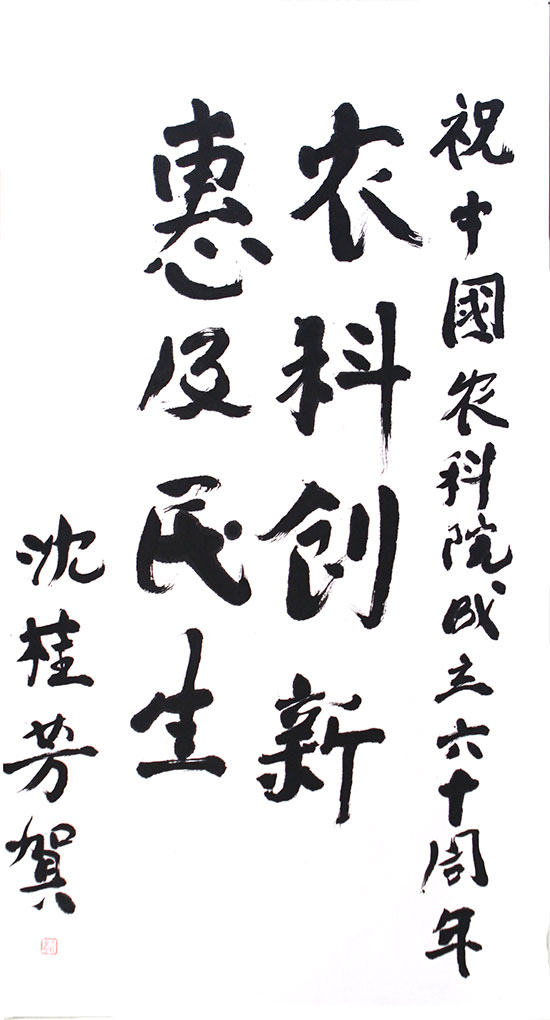 祝中國农科院成立六十周年
农科创新
惠及民生
沈桂芳贺